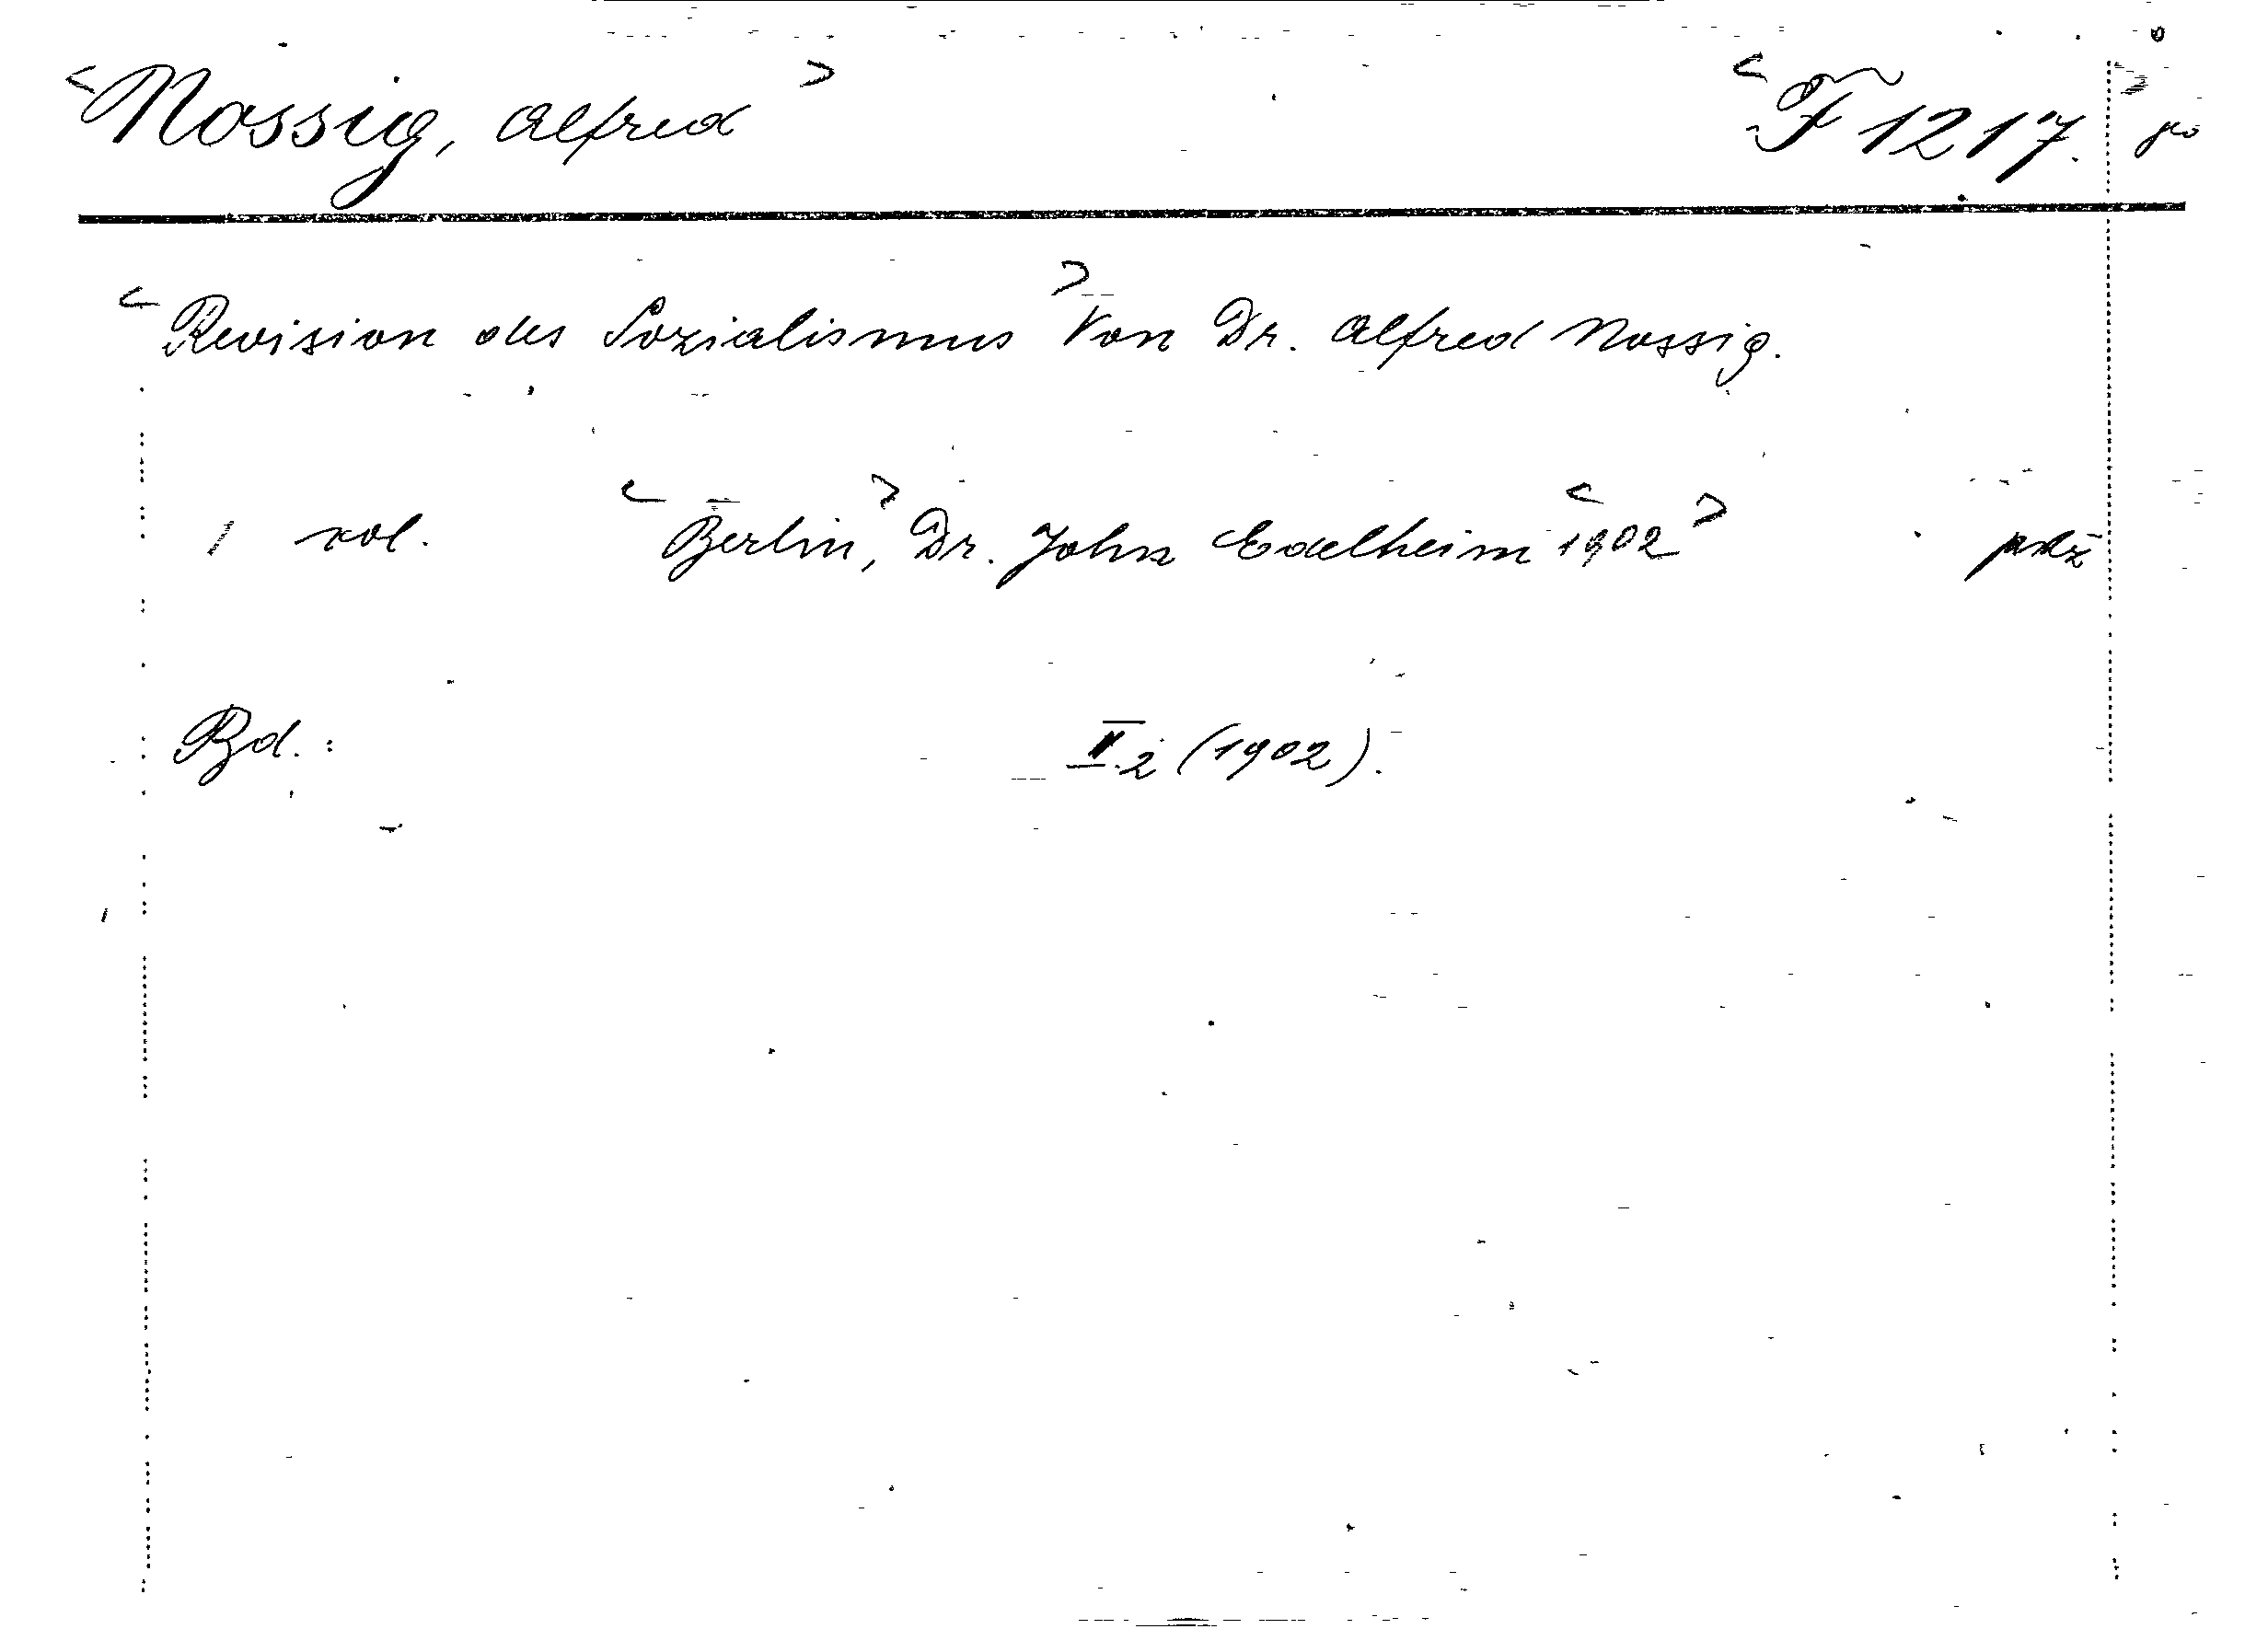 <Nossig, Alfred> <F 1217.>
<Revision des Sozialismus> Von Dr. Alfred Nossig.
1 vol. <Berlin,> Dr. John Edelheim <1902>
Bd.: II.2 (1902).